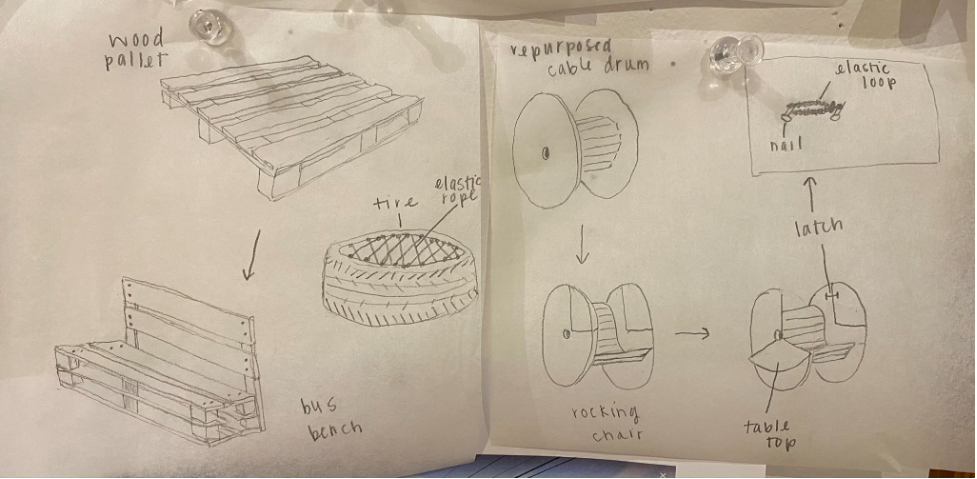 wood
pallet
elastic
rope
tire
bus
bench
repurposed
cable drum
elastic
loop
nail
latch
rocking
chair
table
top